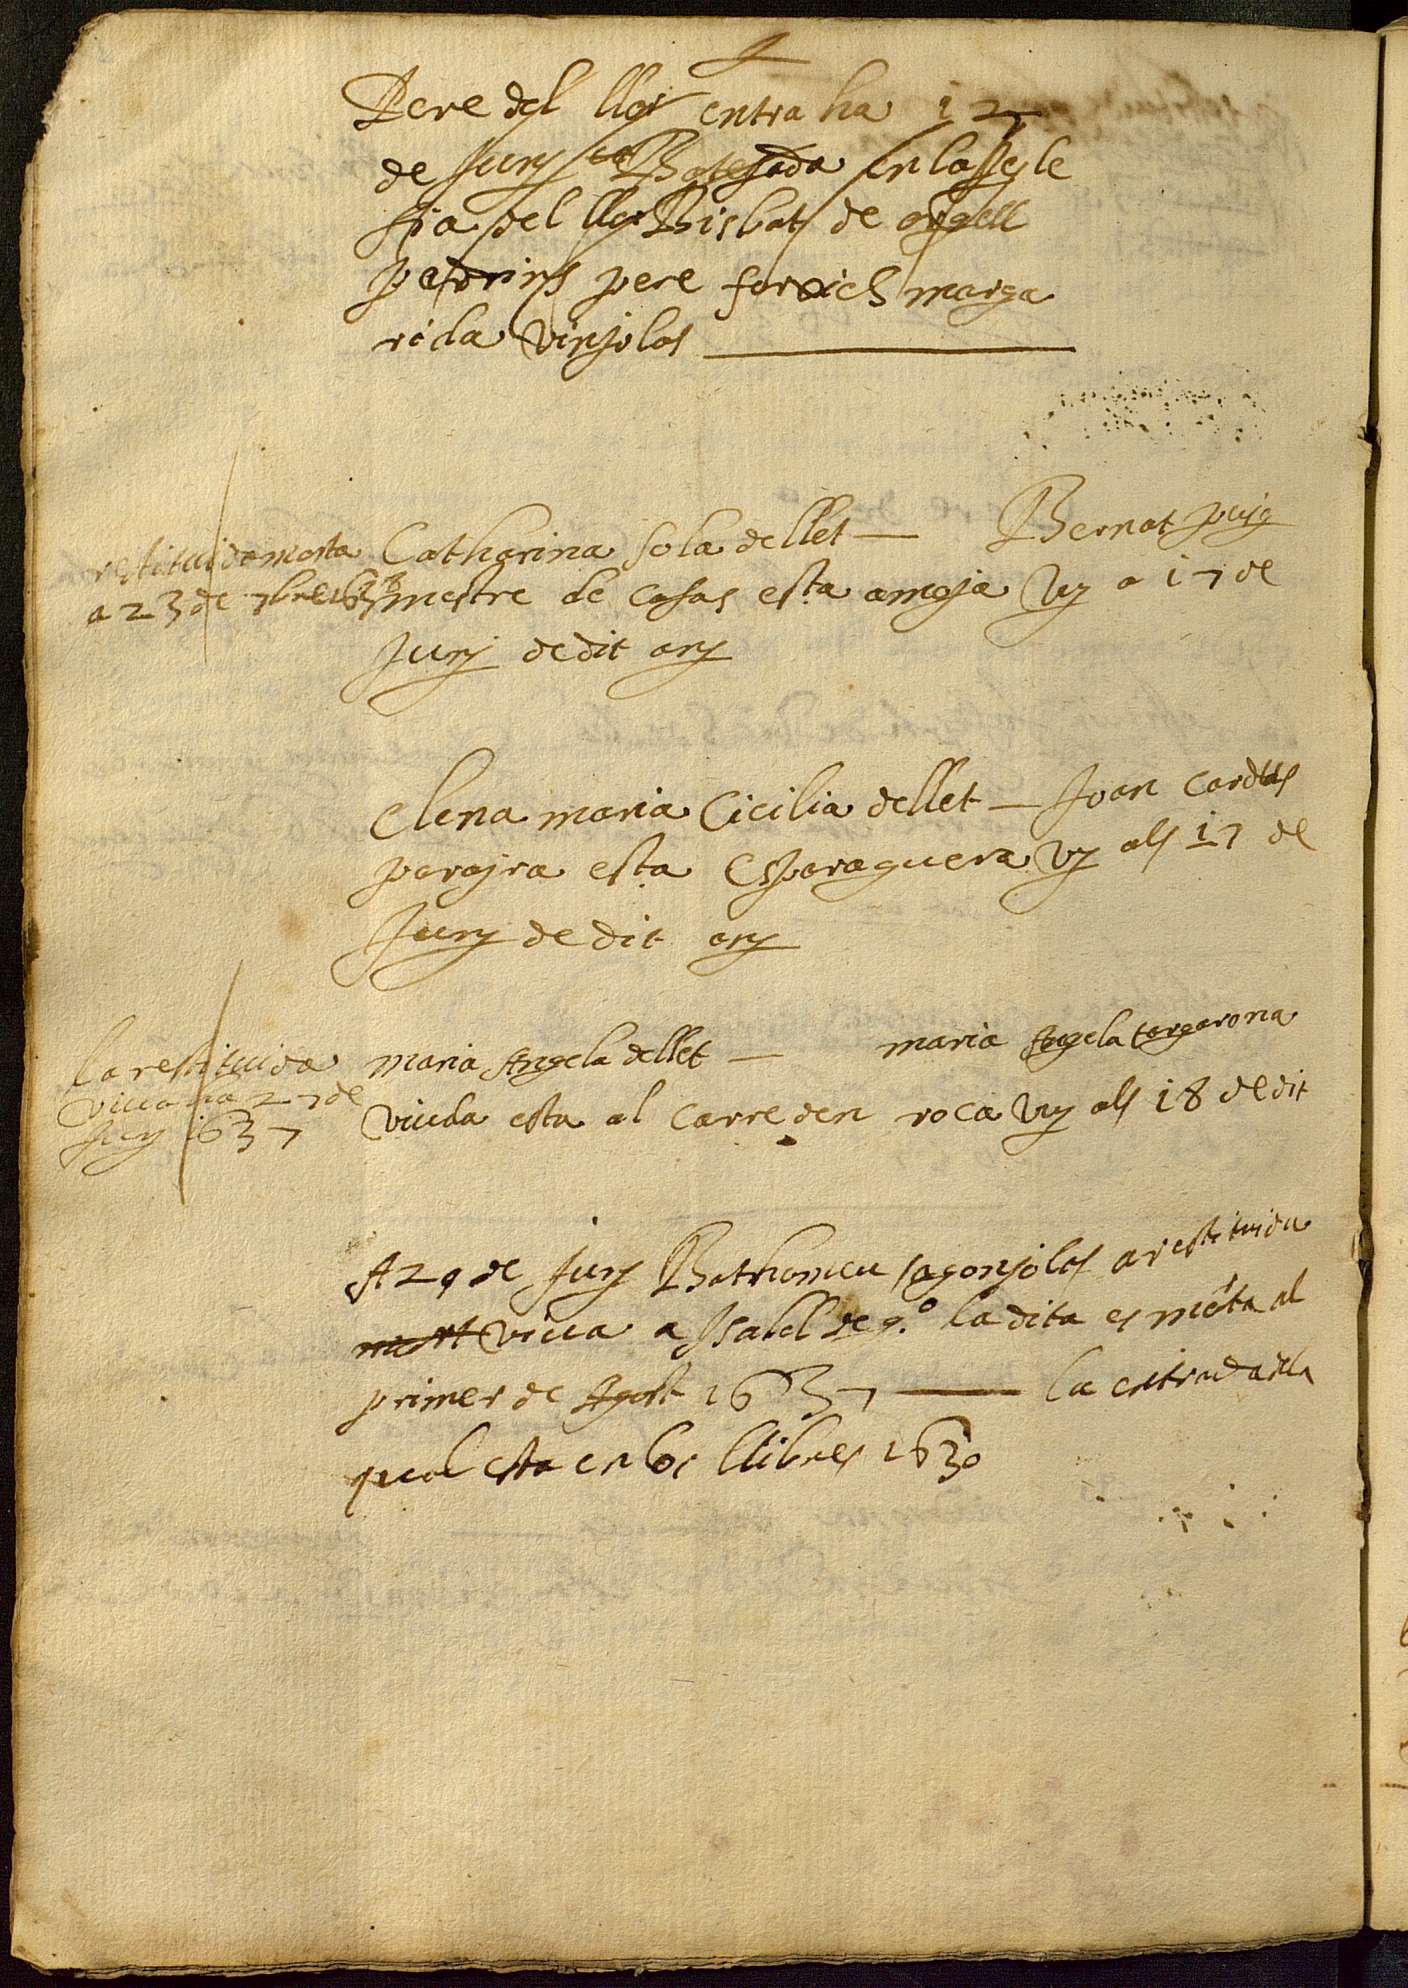 Pere del lloy entra ha 12
de Juny es Batejada en la Isgle
sia del lloy Bisbat de orgell
padrins pere foroich marga
rida vinyolas
restituida morta
a 23 de 7bre 1637
Catharina sola de llet — Bernat puig
mestre de casas esta a moja vuy a 17 de
Juny de dit any
Elena maria Cicilia de llet — Joan Cardus
parayra esta Esparaguera vuy als 17 de
Juny de dit any
la restituida
viva a 27 de
Juny 1637
maria Angela de llet — maria Angela targarona
viuda esta al carre den roca vuy als 18 de dit
A 29 de Juny Bathomeu sagonyoles a restituida
viva a Isabel de g.º la dita es morta al
primer de Agost 1637 — la entrada de la
qual esta en los llibres 1630